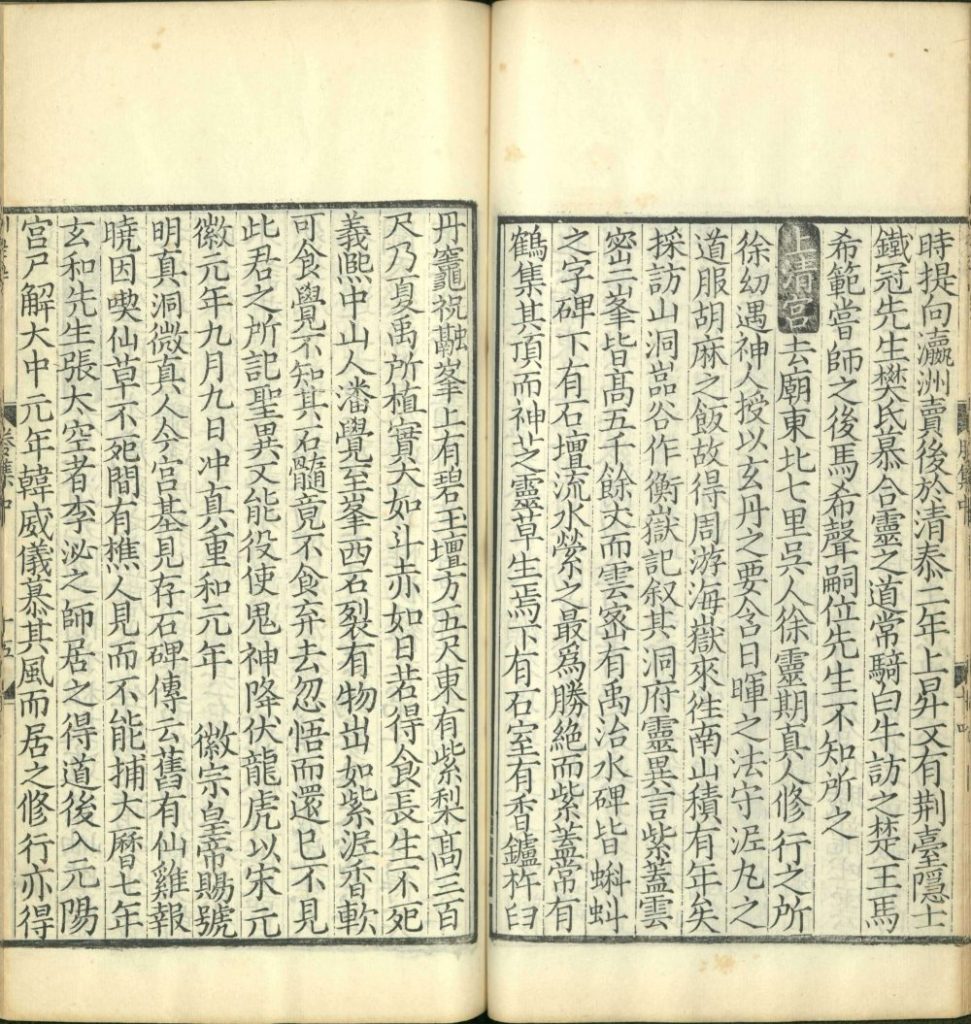 時提向瀛洲賣後於清泰二年上昇又有荆臺隱士
鐵冠先生樊氏慕合靈之道常騎白牛訪之楚王馬
希範嘗師之後馬希聲嗣位先生不知所之
上清宮去廟東北七里吳人徐靈期真人修行之所
徐幼遇神人授以玄丹之要含日暉之法守泥丸之
道服胡麻之飯故得周游海嶽來徃南山積有年矣
採訪山洞嵓谷作衡嶽記叙其洞府靈異言紫蓋雲
密二峯皆髙五千餘丈而雲宻有禹治水碑皆蝌蚪
之字碑下有石壇流水縈之最爲勝絶而紫蓋常有
鶴集其頂而神芝靈草生焉下有石室有香鑪杵臼
丹竈祝融峯上有碧玉壇方五尺東有紫梨髙三百
尺乃夏禹所植實大如斗赤如日若得食長生不死
義熈中山人潘覺至峯西石裂有物出如紫泥香軟
可食覺不知其石髓竟不食弃去忽悟而還已不見
此君之所記聖異又能役使鬼神降伏龍虎以宋元
徽元年九月九日冲真重和元年 徽宗皇帝賜號
明真洞微真人今宫基見存石碑傳云舊有仙雞報
曉因喫仙草不死間有樵人見而不能捕大曆七年
玄和先生張太空者李泌之師居之得道後入元陽
宫尸解大中元年韓威儀慕其風而居之修行亦得